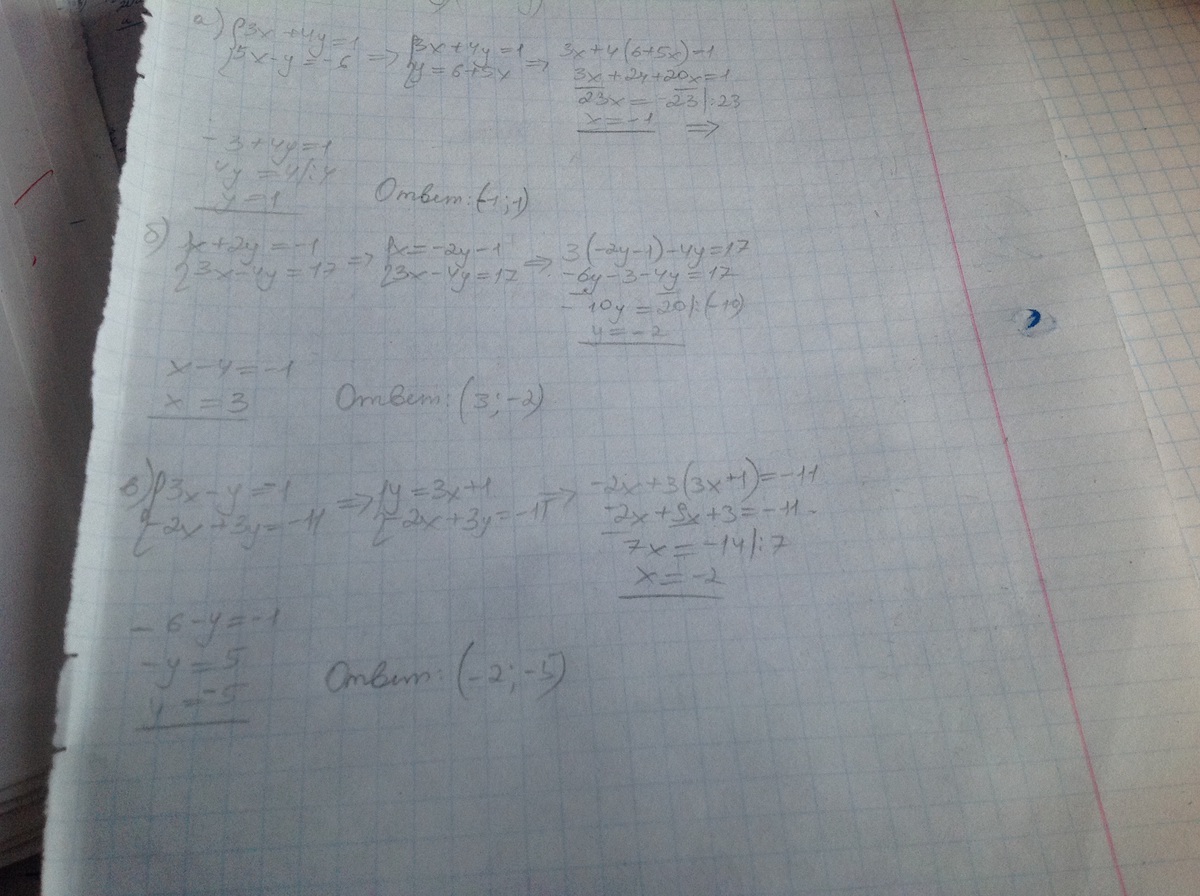 а) {3x+4y=1 {3x+4y=1 3x+4(6+5x)=1
{5x-y=-6 => {y=6+5x => 3x+24+20x=1
23x=-23|:23
x=-1 =>
-3+4y=1
4y=4|:4
y=1 Ответ: (-1;1)
б) {x+2y=-1 {x=-2y-1 3(-2y-1)-4y=17
{3x-4y=17 => {3x-4y=17 => -6y-3-4y=17
-10y=20|:(-10)
y=-2
x-4=-1
x=3 Ответ: (3;-2)
в) {3x-y=-1 {y=3x+1 -2x+3(3x+1)=-11
{-2x+3y=-11 => {-2x+3y=-11 => -2x+9x+3=-11
7x=-14|:7
x=-2
-6-y=-1
-y=5
y=-5 Ответ: (-2;-5)